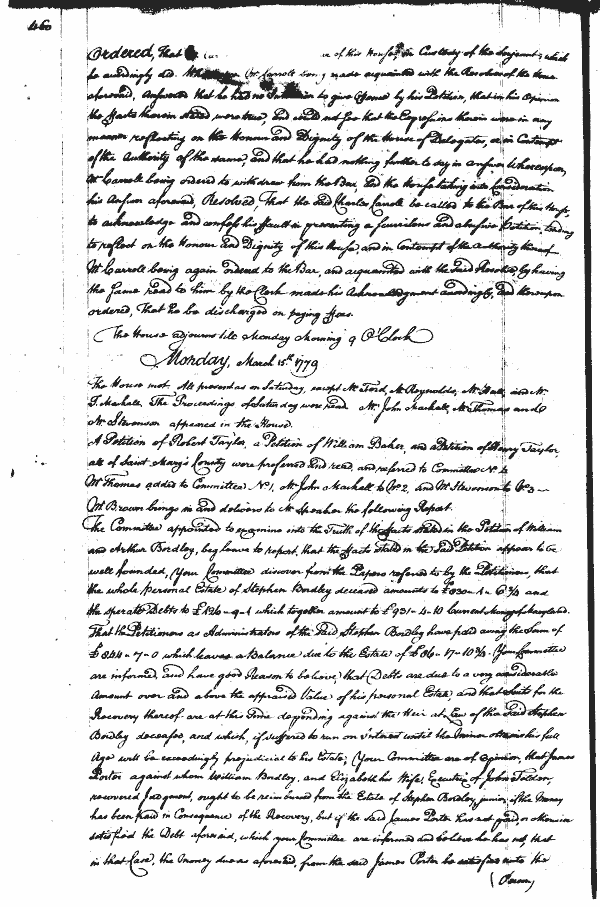 460
Ordered, That of this House in Custody of the Serjeant, which
he accordingly did. Mr Carroll being made acquainted with the Resolve of the House
aforesaid, Answered that he had no Intention to give Offence by his Petition, that in his Opinion
the Facts therein stated were true, and could not see that the Expressions therein were in any
manner reflecting on the Honour and Dignity of the House of Delegates, or in Contempt
of the Authority of the same, and that he had nothing further to say in Answer Whereupon,
Mr Carroll being ordered to withdraw from the Bar, and the House taking into Consideration
his Answer aforesaid, Resolved, That the said Charles Carroll be called to the Bar of this House,
to acknowledge and confess his Fault in presenting a scurrilous and abusive Petition, tending
to reflect on the Honour and Dignity of this House, and in Contempt of the Authority thereof
Mr Carroll being again ordered to the Bar, and acquainted with the said Resolve, by having
the same read to him by the Clerk made his Acknowledgment accordingly, and thereupon
ordered, That he be discharged on paying Fees.
The House adjourns till Monday Morning 9 O'Clock
Monday, March 15th 1779
The House met. All present as on Saturday, except Mr Ford, Mr Reynolds, Mr Hall, and Mr
T. Mackall. The Proceedings of Saturday were read. Mr John Mackall, Mr Thomas and
Mr Stevenson appeared in the House.
A Petition of Robert Taylor, a Petition of William Baker, and a Petition of Henry Taylor,
all of Saint Mary's County were preferred and read, and referred to Committee No 4
Mr Thomas added to Committee No 1, Mr John Mackall to No 2, and Mr Stevenson to No 3
Mr Brown brings in and delivers to Mr Speaker the following Report.
The Committee appointed to examine into the Truth of the Facts stated in the Petition of William
and Arthur Bordley, beg leave to report, that the Facts stated in the said Petition appear to be
well founded, Your Committee discover from the Papers referred to by the Petitioners, that
the whole personal Estate of Stephen Bordley deceased amounts to £830-1-6 3/4 and
the sperate Debts to which together amount to £931-4-10 Current Money of Maryland.
That the Petitioners as Administrators of the said Stephen Bordley have paid away the Sum of
£844-7-0 which leaves a Balance due to the Estate of £86-17-10 Your Committee
are informed, and have good Reason to believe, that Debts are due to a very considerable
Amount over and above the appraised Value of his personal Estate and that Suits for the
Recovery thereof are at this Time depending against the Heir at Law of the said Stephen
Bordley deceased, and which, if suffered to run on Interest until the Minor attains his full
Age will be exceedingly prejudicial to his Estate; Your Committee are of Opinion, that James
Porter against whom William Bordley, and Elizabeth his Wife, Executrix of John
recovered Judgment, ought to be reimbursed from the Estate of Stephen Bordley, junior, if the Money
has been paid in Consequence of the Recovery, but if the said James Porter has not paid, or otherwise
satisfied the Debt aforesaid, which your Committee are informed and believe he has not, that
in that Case, the Money due as aforesaid, from the said James Porter be satisfied unto the